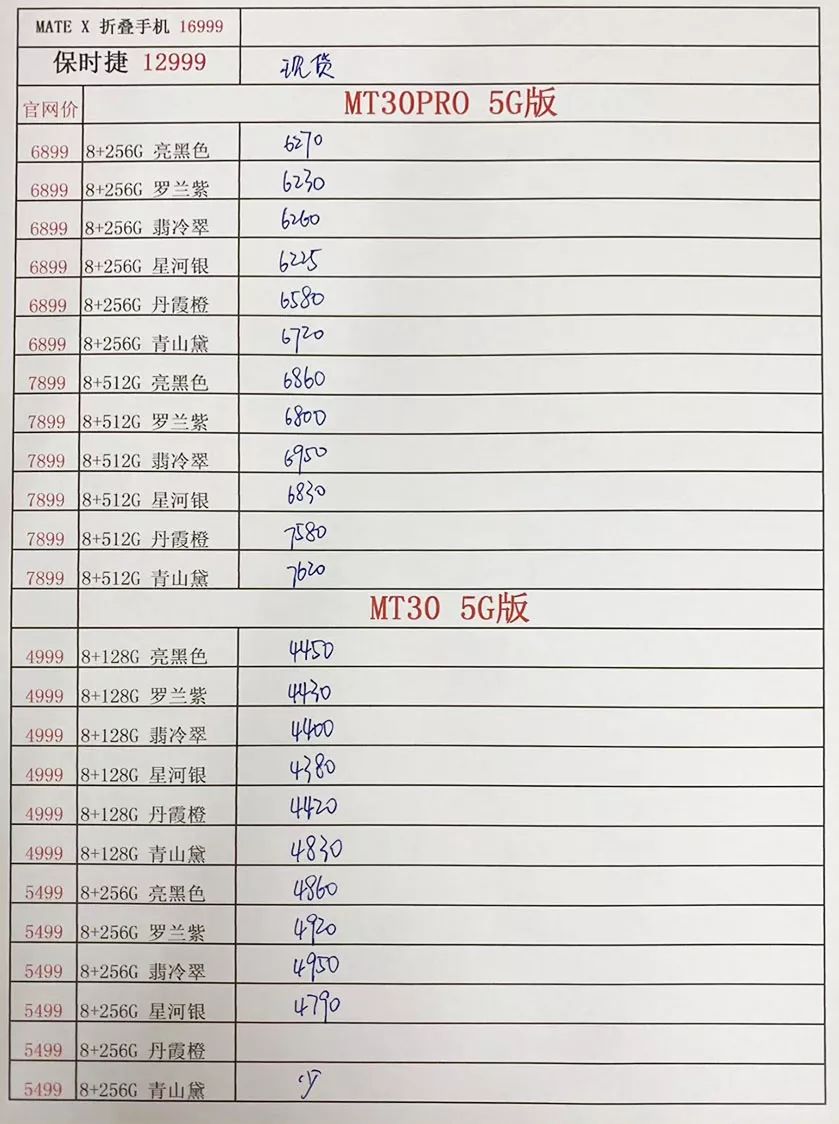 MATE X 折叠手机 16999
保时捷 12999 现货
官网价 MT30PRO 5G版
6899 8+256G 亮黑色 6270
6899 8+256G 罗兰紫 6230
6899 8+256G 翡冷翠 6260
6899 8+256G 星河银 6225
6899 8+256G 丹霞橙 6580
6899 8+256G 青山黛 6720
7899 8+512G 亮黑色 6860
7899 8+512G 罗兰紫 6800
7899 8+512G 翡冷翠 6950
7899 8+512G 星河银 6830
7899 8+512G 丹霞橙 7580
7899 8+512G 青山黛 7620
MT30 5G版
4999 8+128G 亮黑色 4450
4999 8+128G 罗兰紫 4430
4999 8+128G 翡冷翠 4400
4999 8+128G 星河银 4380
4999 8+128G 丹霞橙 4420
4999 8+128G 青山黛 4830
5499 8+256G 亮黑色 4860
5499 8+256G 罗兰紫 4920
5499 8+256G 翡冷翠 4950
5499 8+256G 星河银 4790
5499 8+256G 丹霞橙
5499 8+256G 青山黛 少